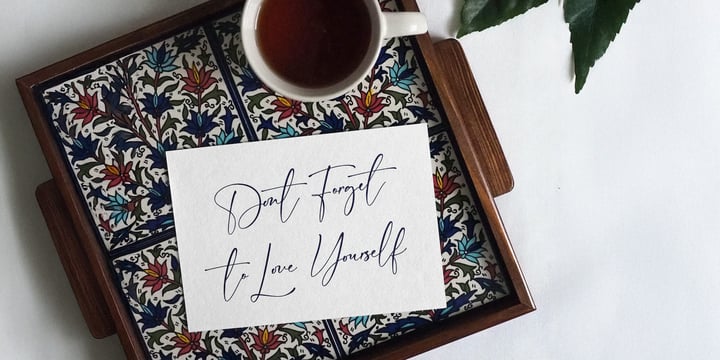 Dont Forget
to Love Yourself